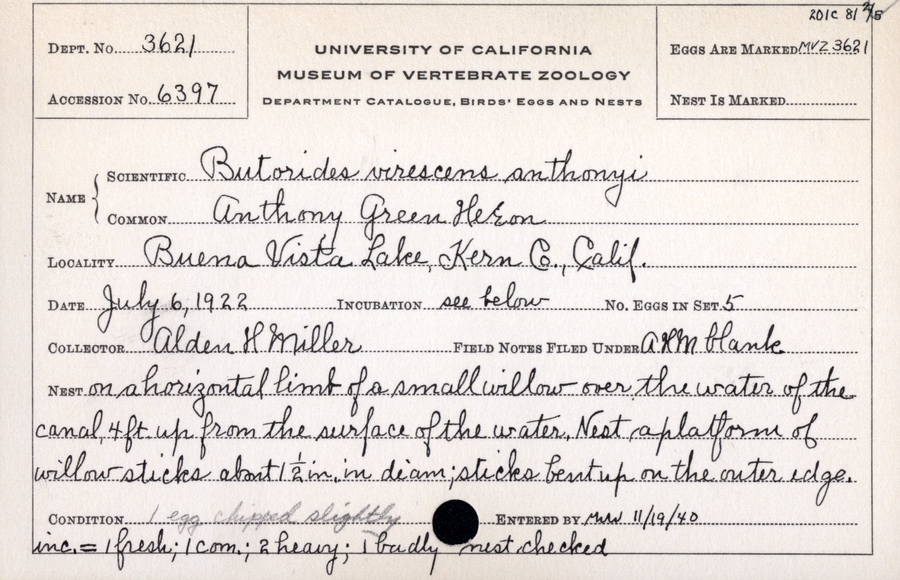 201C 81 2/5
DEPT. NO. 3621
UNIVERSITY OF CALIFORNIA
EGGS ARE MARKED MVZ 3621
MUSEUM OF VERTEBRATE ZOOLOGY
ACCESSION NO. 6397
DEPARTMENT CATALOGUE, BIRDS' EGGS AND NESTS
NEST IS MARKED
NAME
SCIENTIFIC Butorides virescens anthonyi
COMMON Anthony Green Heron
LOCALITY Buena Vista Lake, Kern Co., Calif.
DATE July 6, 1922 INCUBATION see below NO. EGGS IN SET 5
COLLECTOR Alden H Miller FIELD NOTES FILED UNDER AHM blank
NEST on a horizontal limb of a small willow over the water of the
canal, 4 ft. up from the surface of the water. Nest a platform of
willow sticks about 1 1/2 in. in diam; sticks bent up on the outer edge.
CONDITION 1 egg chipped slightly ENTERED BY MWW 11/19/40
inc. = 1 fresh; 1 com.; 2 heavy; 1 badly nest checked